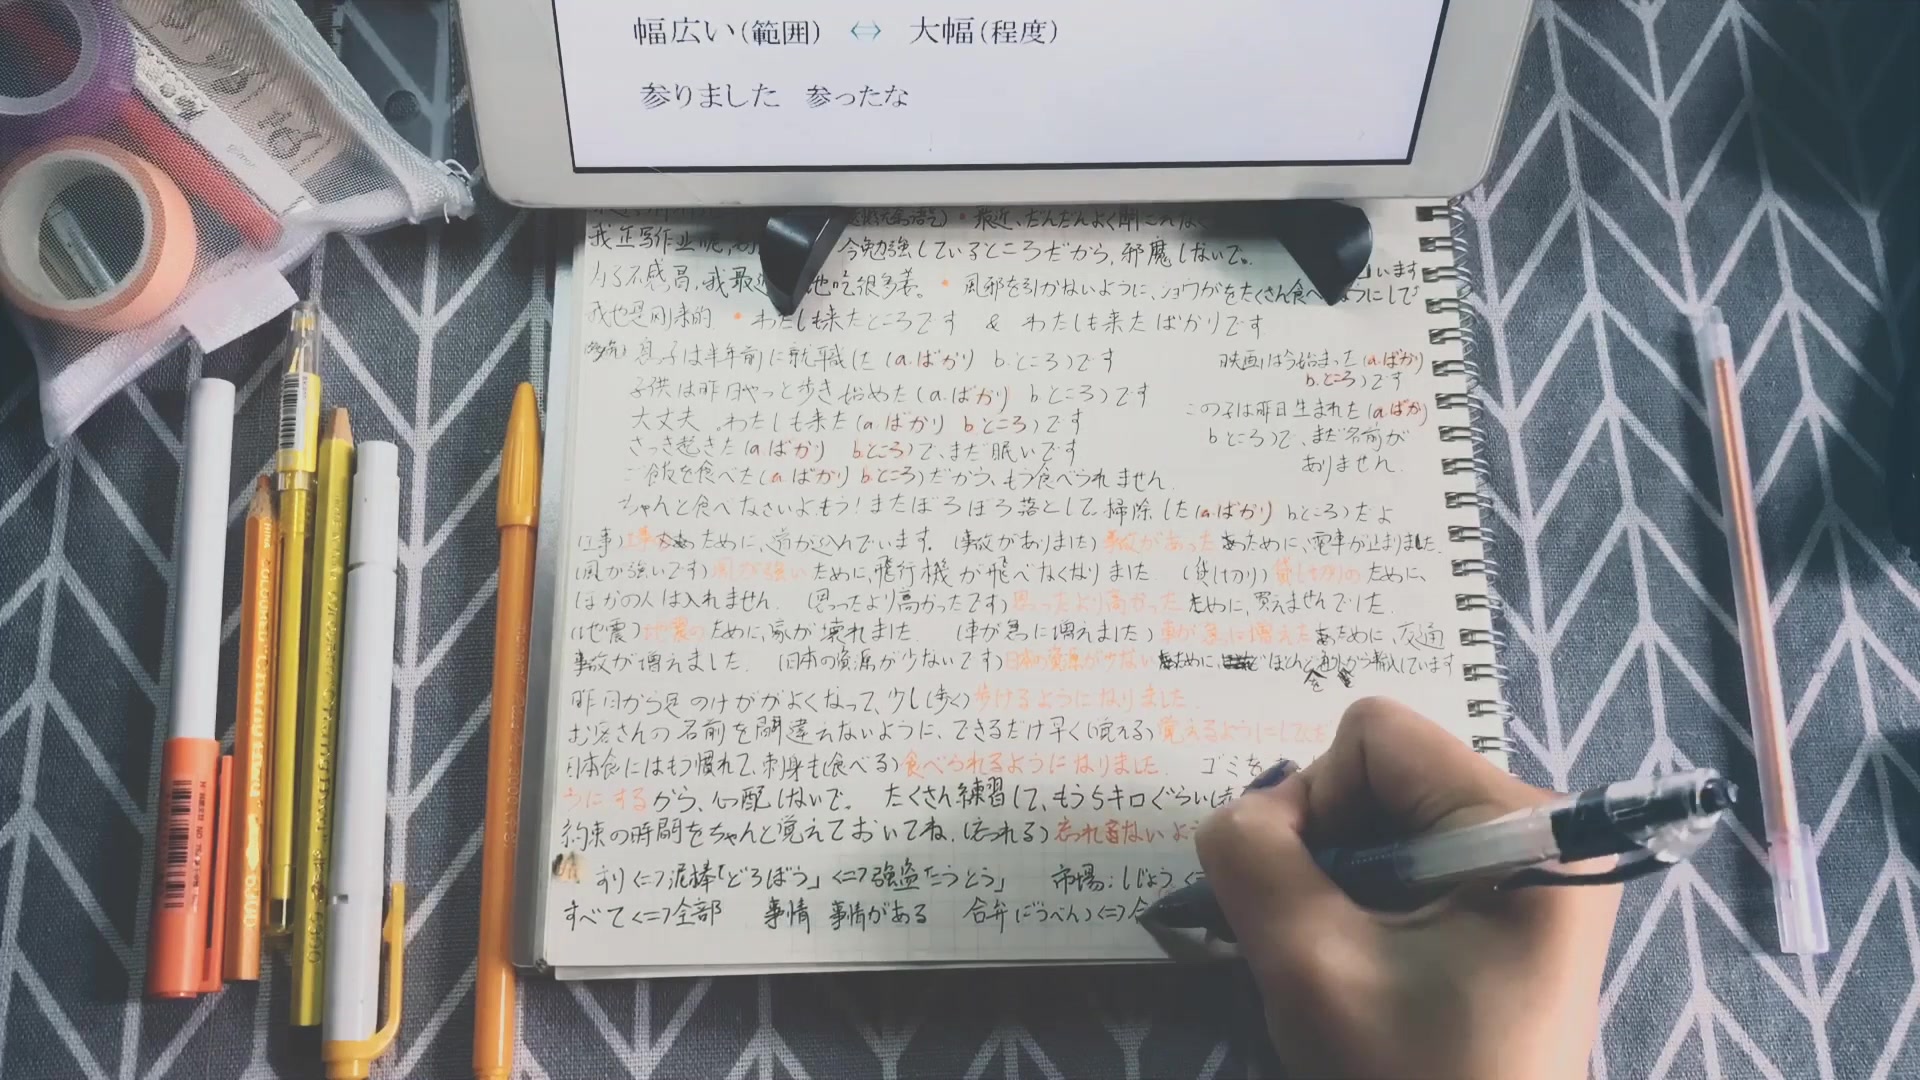 幅広い(範囲) ⇔ 大幅(程度)
参りました 参ったな
最近、だんだんよく
我正写作业呢, 今勉強しているところだから, 邪魔しないで。
为了不感冒,我最近 他吃很多姜。 • 風邪を引かないように、ショウガをたくさん食べ ようにして います
我也是刚来的 • わたしも来たところです & わたしも来たばかりです
息子は半年前に就職した (a.ばかり b.ところ)です
映画は今始まった(a.ばかり
b.ところ)です
子供は昨日やっと歩き始めた(a.ばかり bところ)です
この子は昨日生まれた(a.ばかり
bところ)で、まだ名前が
ありません.
大丈夫。わたしも来た(a.ばかり bところ)です
さっき起きた(a.ばかり bところ)で、まだ眠いです
ご飯を食べた(a.ばかり bところ)だから、もう食べられません.
ちゃんと食べなさいよ。もう!またぼろぼろ落として。掃除した(a.ばかり) bところ)だよ
(工事)工事 ために、道が込んでいます. (事故がありました)事故があった ために、電車が止まりました.
(風が強いです)風が強い ために、飛行機が飛べなくなりました. (貸し切り)貸し切りの ために、
ほかの人は入れません. (思ったより高かったです)思ったより高かった ために、買えませんでした.
(地震)地震の ために、家が壊れました. (車が急に増えました)車が急に増えた ために、交通
事故が増えました. (日本の資源が少ないです)日本の資源が少ない ために、 ほとんど から輸入しています
昨日から足のけががよくなって、少し(歩く)歩けるようになりました.
お客さんの名前を間違えないように、できるだけ早く(覚える)覚えるようにして
日本食にはもう慣れて、刺身も(食べる)食べられるようになりました. ゴミを
うにするから、心配しないで。 たくさん練習して、もう5キロぐらい
約束の時間をちゃんと覚えておいてね. (忘れる)忘れ ないよう
すり<=>泥棒「どろぼう」<=>強盗「ごうとう」 市場:しじょう
すべて<=>全部 事情 事情がある 合弁(ごうべん)<=>合